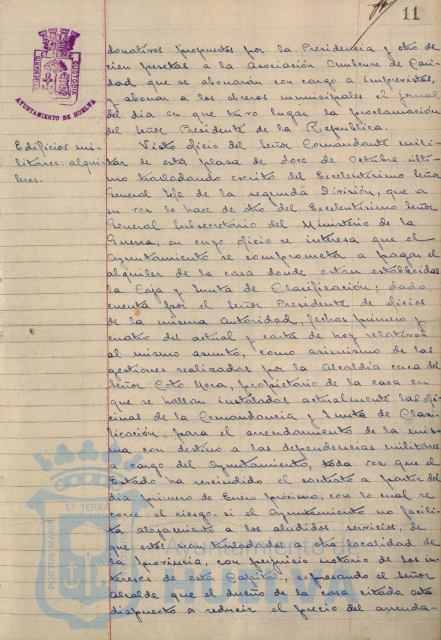 11
AYUNTAMIENTO DE HUELVA
donativos propuestos por la Presidencia y otro de
cien pesetas a la Asociación Onubense de Cari-
dad que se abonarán con cargo a imprevistos,
y abonar a los obreros municipales el jornal
del día en que tuvo lugar la proclamación
del Señor Presidente de la República.
Edificios mi-
litares: alqui-
leres.
Visto oficio del Señor Comandante mili-
tar de esta plaza de doce de Octubre últi-
mo trasladando escrito del Excelentísimo Señor
General Jefe de la segunda División, que a
su vez lo hace de otro del Excelentísimo Señor
General Subsecretario del Ministerio de la
Guerra, en cuyo oficio se interesa que el
Ayuntamiento se comprometa a pagar el
alquiler de la casa donde están establecidas
la Caja y Junta de Clasificación; dada
cuenta por el Señor Presidente de oficios
de la misma autoridad, fechas primero y
cuatro del actual y carta de hoy relativos
al mismo asunto, como asimismo de las
gestiones realizadas por la Alcaldía cerca del
Señor Coto Mora, propietario de la casa en
que se hallan instaladas actualmente las ofi-
cinas de la Comandancia y Junta de Clasi-
ficación, para el arrendamiento de la mis-
ma, con destino a las dependencias militares
a cargo del Ayuntamiento, toda vez que el
Estado ha rescindido el contrato a partir del
día primero de Enero próximo, con lo cual se
corre el riesgo, si el Ayuntamiento no facili-
ta alojamiento a los aludidos servicios, de
que estos sean trasladados a otra localidad de
la provincia, con perjuicio notorio de los in-
tereses de esta Capital, expresando el Señor
Alcalde que el dueño de la casa citada está
dispuesto a reducir el precio del arrenda-